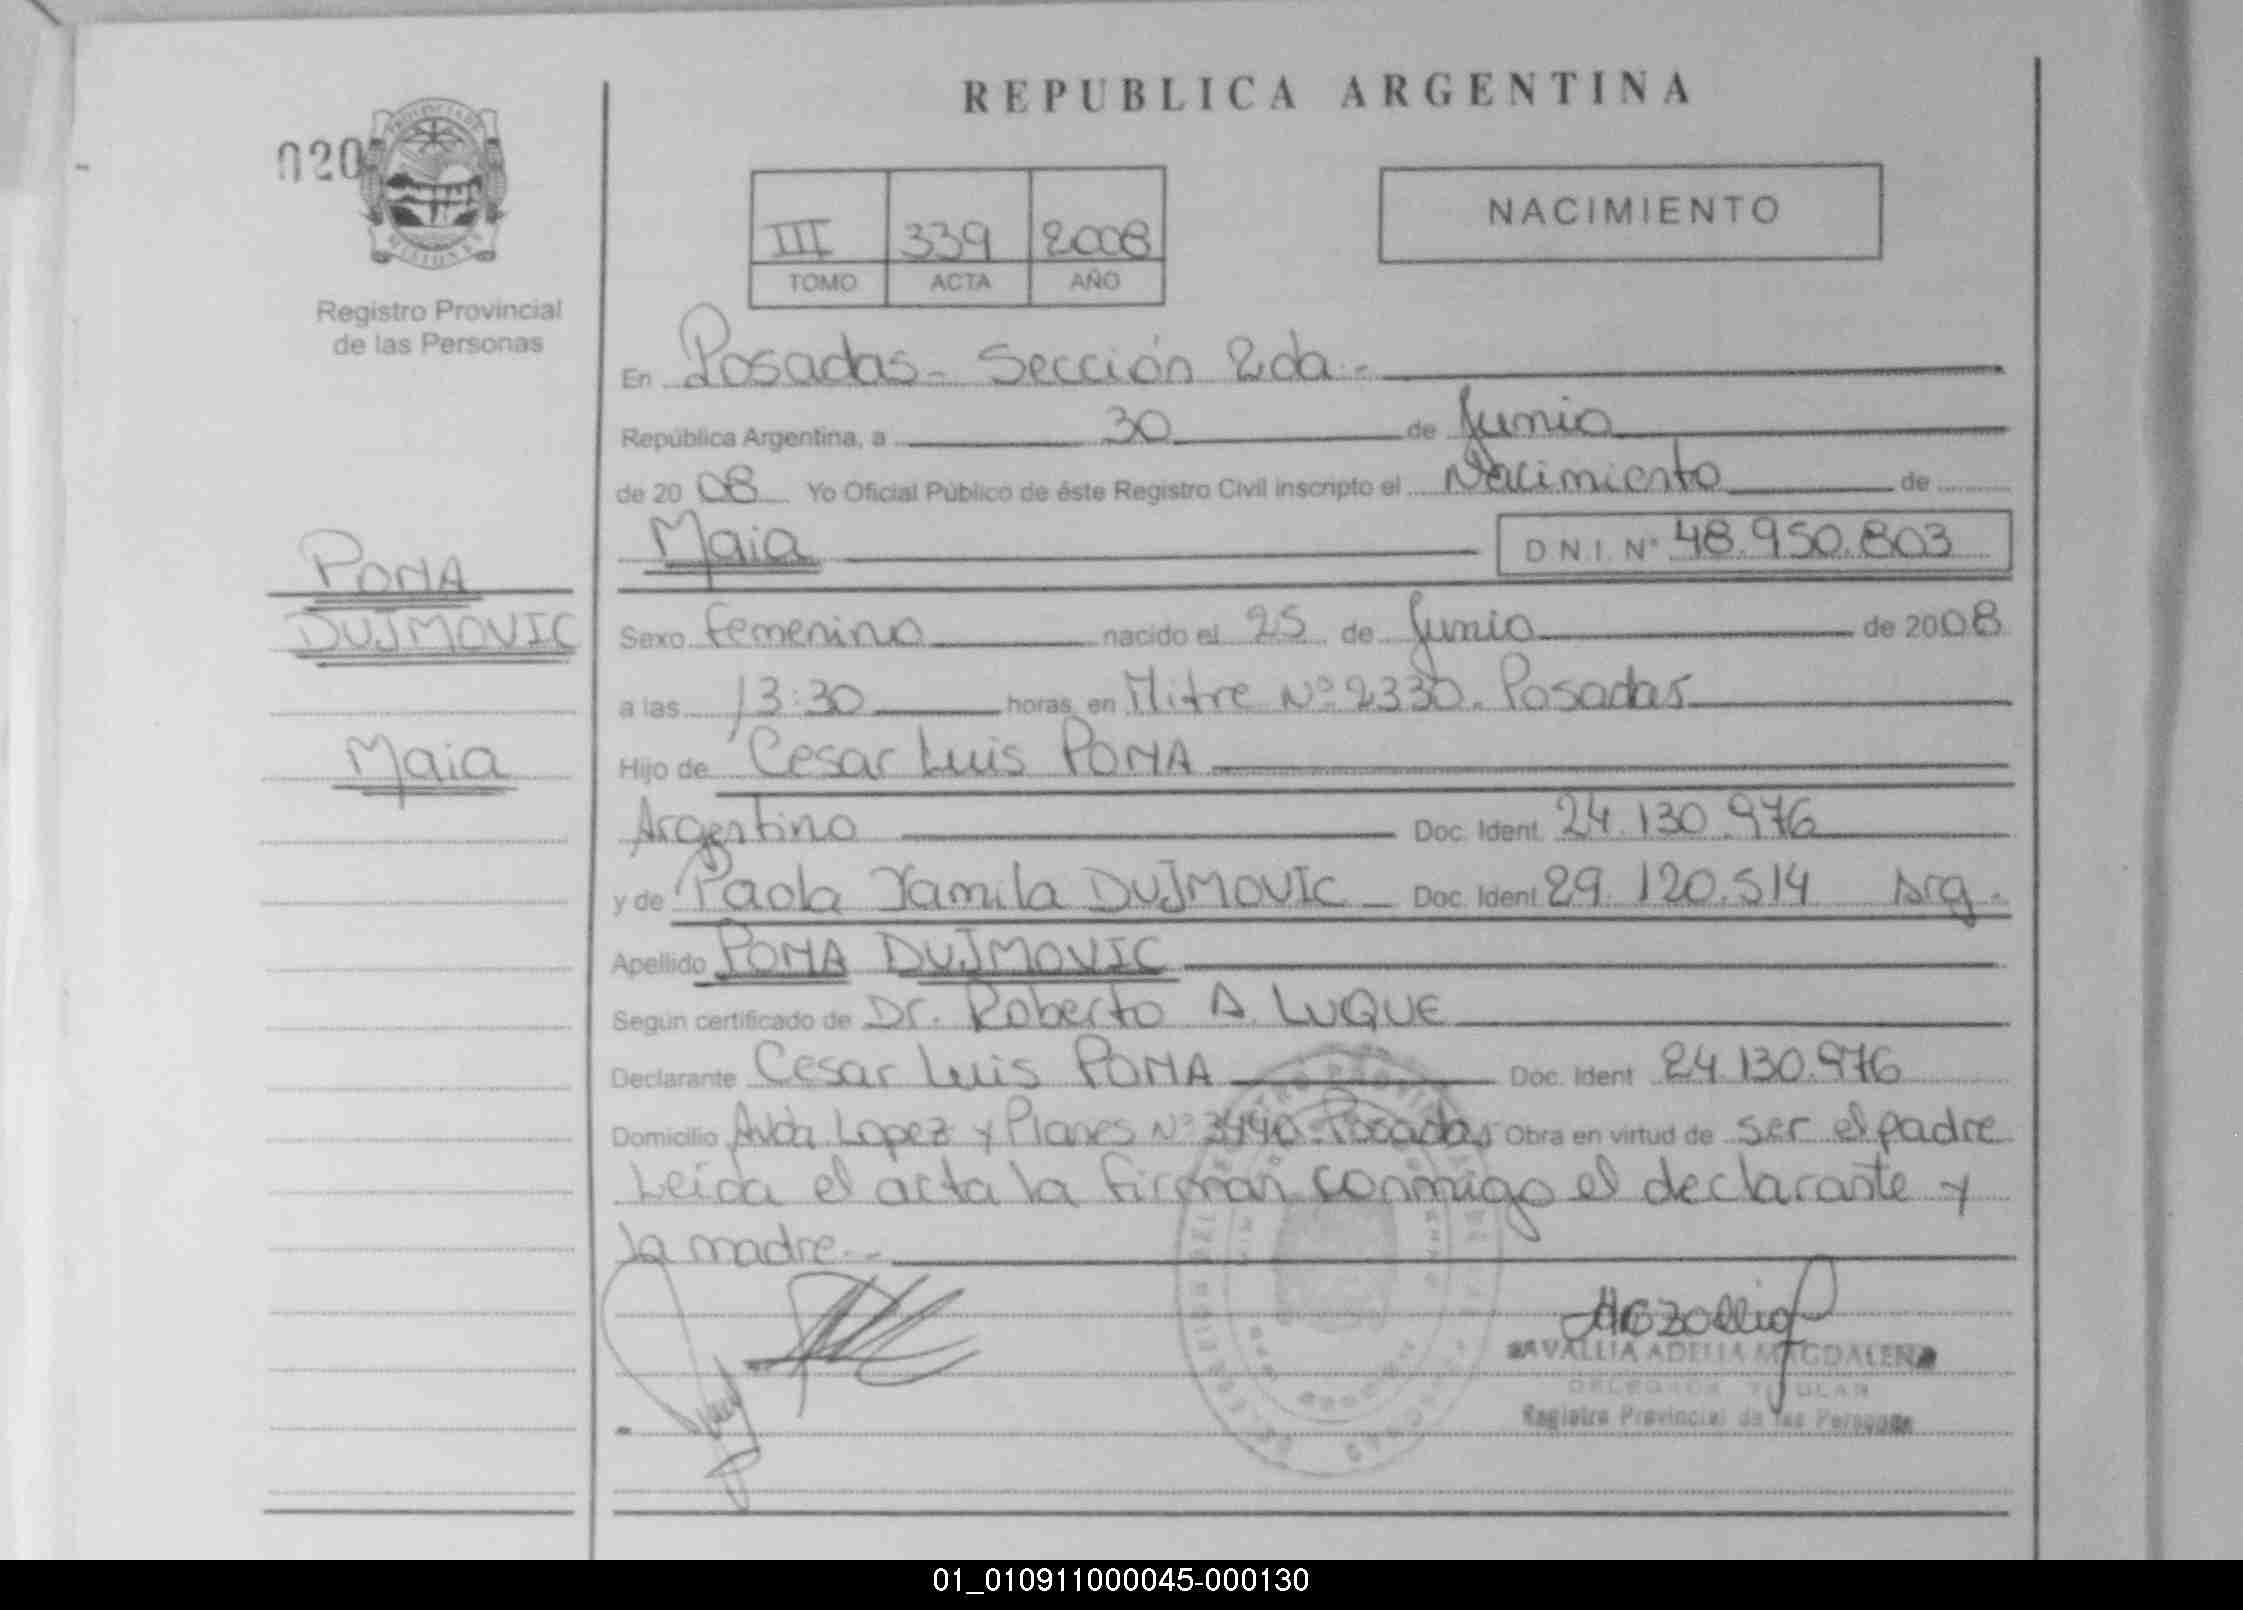 REPUBLICA ARGENTINA
020
PROVINCIA DE
MISIONES
Registro Provincial
de las Personas
III 339 2008
TOMO ACTA AÑO
NACIMIENTO
En Posadas - Sección 2da -
República Argentina, a 30 de Junio
de 20 08 Yo Oficial Público de éste Registro Civil inscripto el Nacimiento de
Maia D.N.I. Nº 48.950.803
POMA
DUJMOVIC
Maia
Sexo femenino nacido el 25 de Junio de 2008
a las 13:30 horas, en Mitre Nº 2330. Posadas
Hijo de Cesar Luis POMA
Argentino Doc. Ident. 24.130.976
y de Paola Yamila DUJMOVIC - Doc. Ident 29.120.514 Arg.
Apellido POMA DUJMOVIC
Según certificado de Dr. Roberto A. LUQUE
Declarante Cesar Luis POMA Doc. Ident 24.130.976
Domicilio Avda Lopez y Planes Nº 3440 Posadas Obra en virtud de ser el padre
Leída el acta la firman conmigo el declarante y
la madre.-
ADELIA MAGDALENA
DELEGADA TITULAR
Registro Provincial de las Personas
01_010911000045-000130